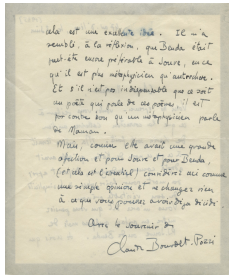 cela est une excellente idée. Il m'a
semblé, à la réflexion, que Benda était
peut-être encore préférable à Jouve, en ce
qu'il est plus métaphysicien qu'autre chose.
Et s'il n'est pas indispensable que ce soit
un poète qui parle de ces poèmes, il est
par contre bon qu'un métaphysicien parle
de Maman.
Mais, comme elle avait une grande
affection et pour Jouve et pour Benda,
(et cela est l'essentiel) considérez ceci comme
une simple opinion et ne changez rien
à ce que vous pouvez avoir déjà décidé.
Avec le souvenir de
Claude Bourdet-